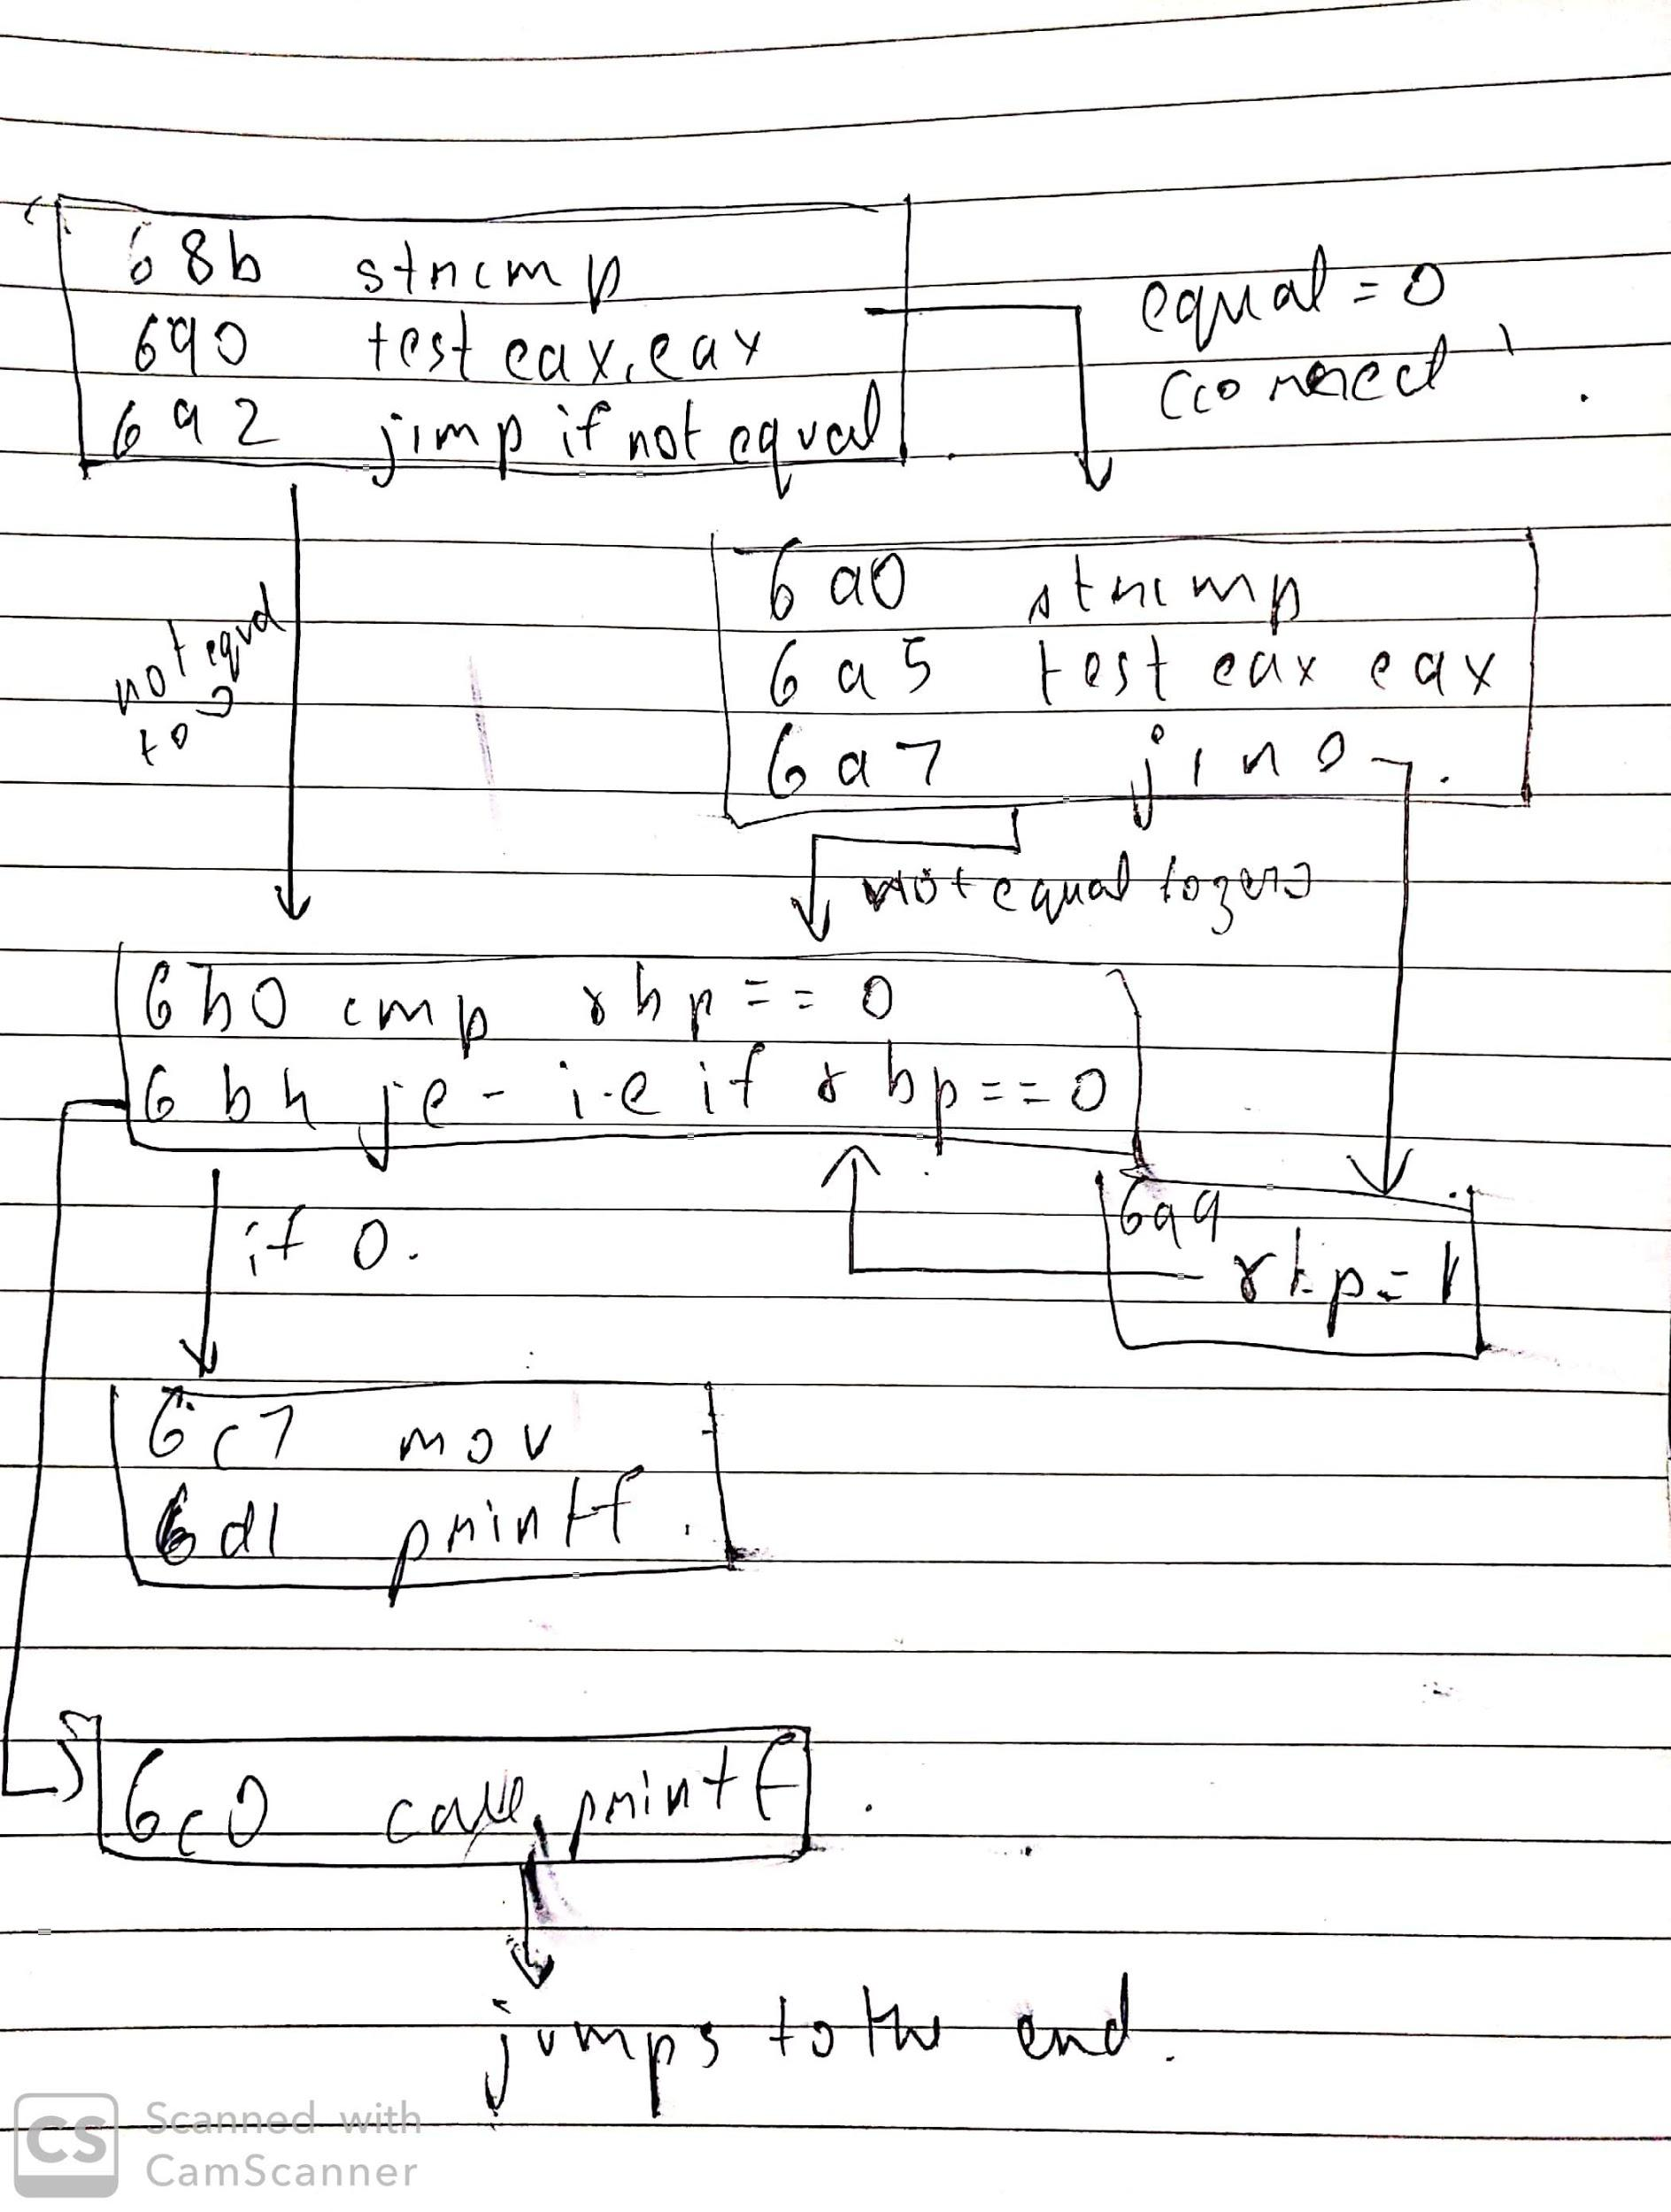 68b strcmp
690 test eax, eax
692 jimp if not equal
equal = 0
(correct)
not equal
to 0
6a0 strcmp
6a5 test eax eax
6a7
not equal to zero
6b0 cmp rbp == 0
6b4 je - i.e if rbp == 0
if 0.
6a9
rbp = 1
6c7 mov
6d1 printf.
6c0 call printf
jumps to the end.
CS Scanned with
CamScanner